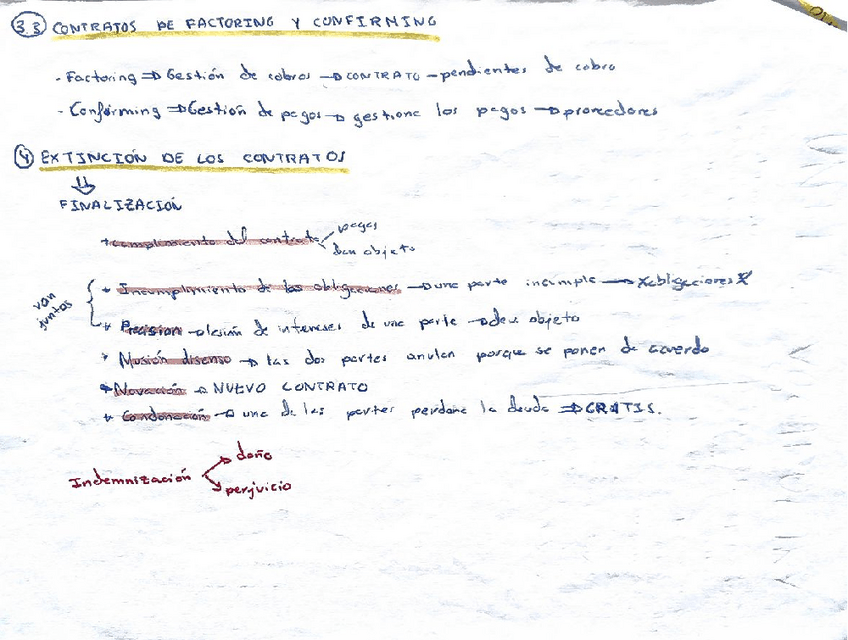 3.3 CONTRATOS DE FACTORING Y CONFIRMING
- Factoring ⇒ Gestión de cobros → CONTRATO - pendientes de cobro
- Confirming ⇒ Gestión de pagos → gestiona los pagos → proveedores
4 EXTINCIÓN DE LOS CONTRATOS
⇓
FINALIZACIÓN
pagas
+ cumplimiento del contrato
Dan objeto
van juntos
* Incumplimiento de las obligaciones → una parte incumple → X obligaciones X
* Recisión → lesión de intereses de una parte → dev. objeto
* Musión disenso → las dos partes anulan porque se ponen de acuerdo
* Novación → NUEVO CONTRATO
* Condonación → una de las partes perdona la deuda ⇒ GRATIS.
daño
Indemnización
perjuicio